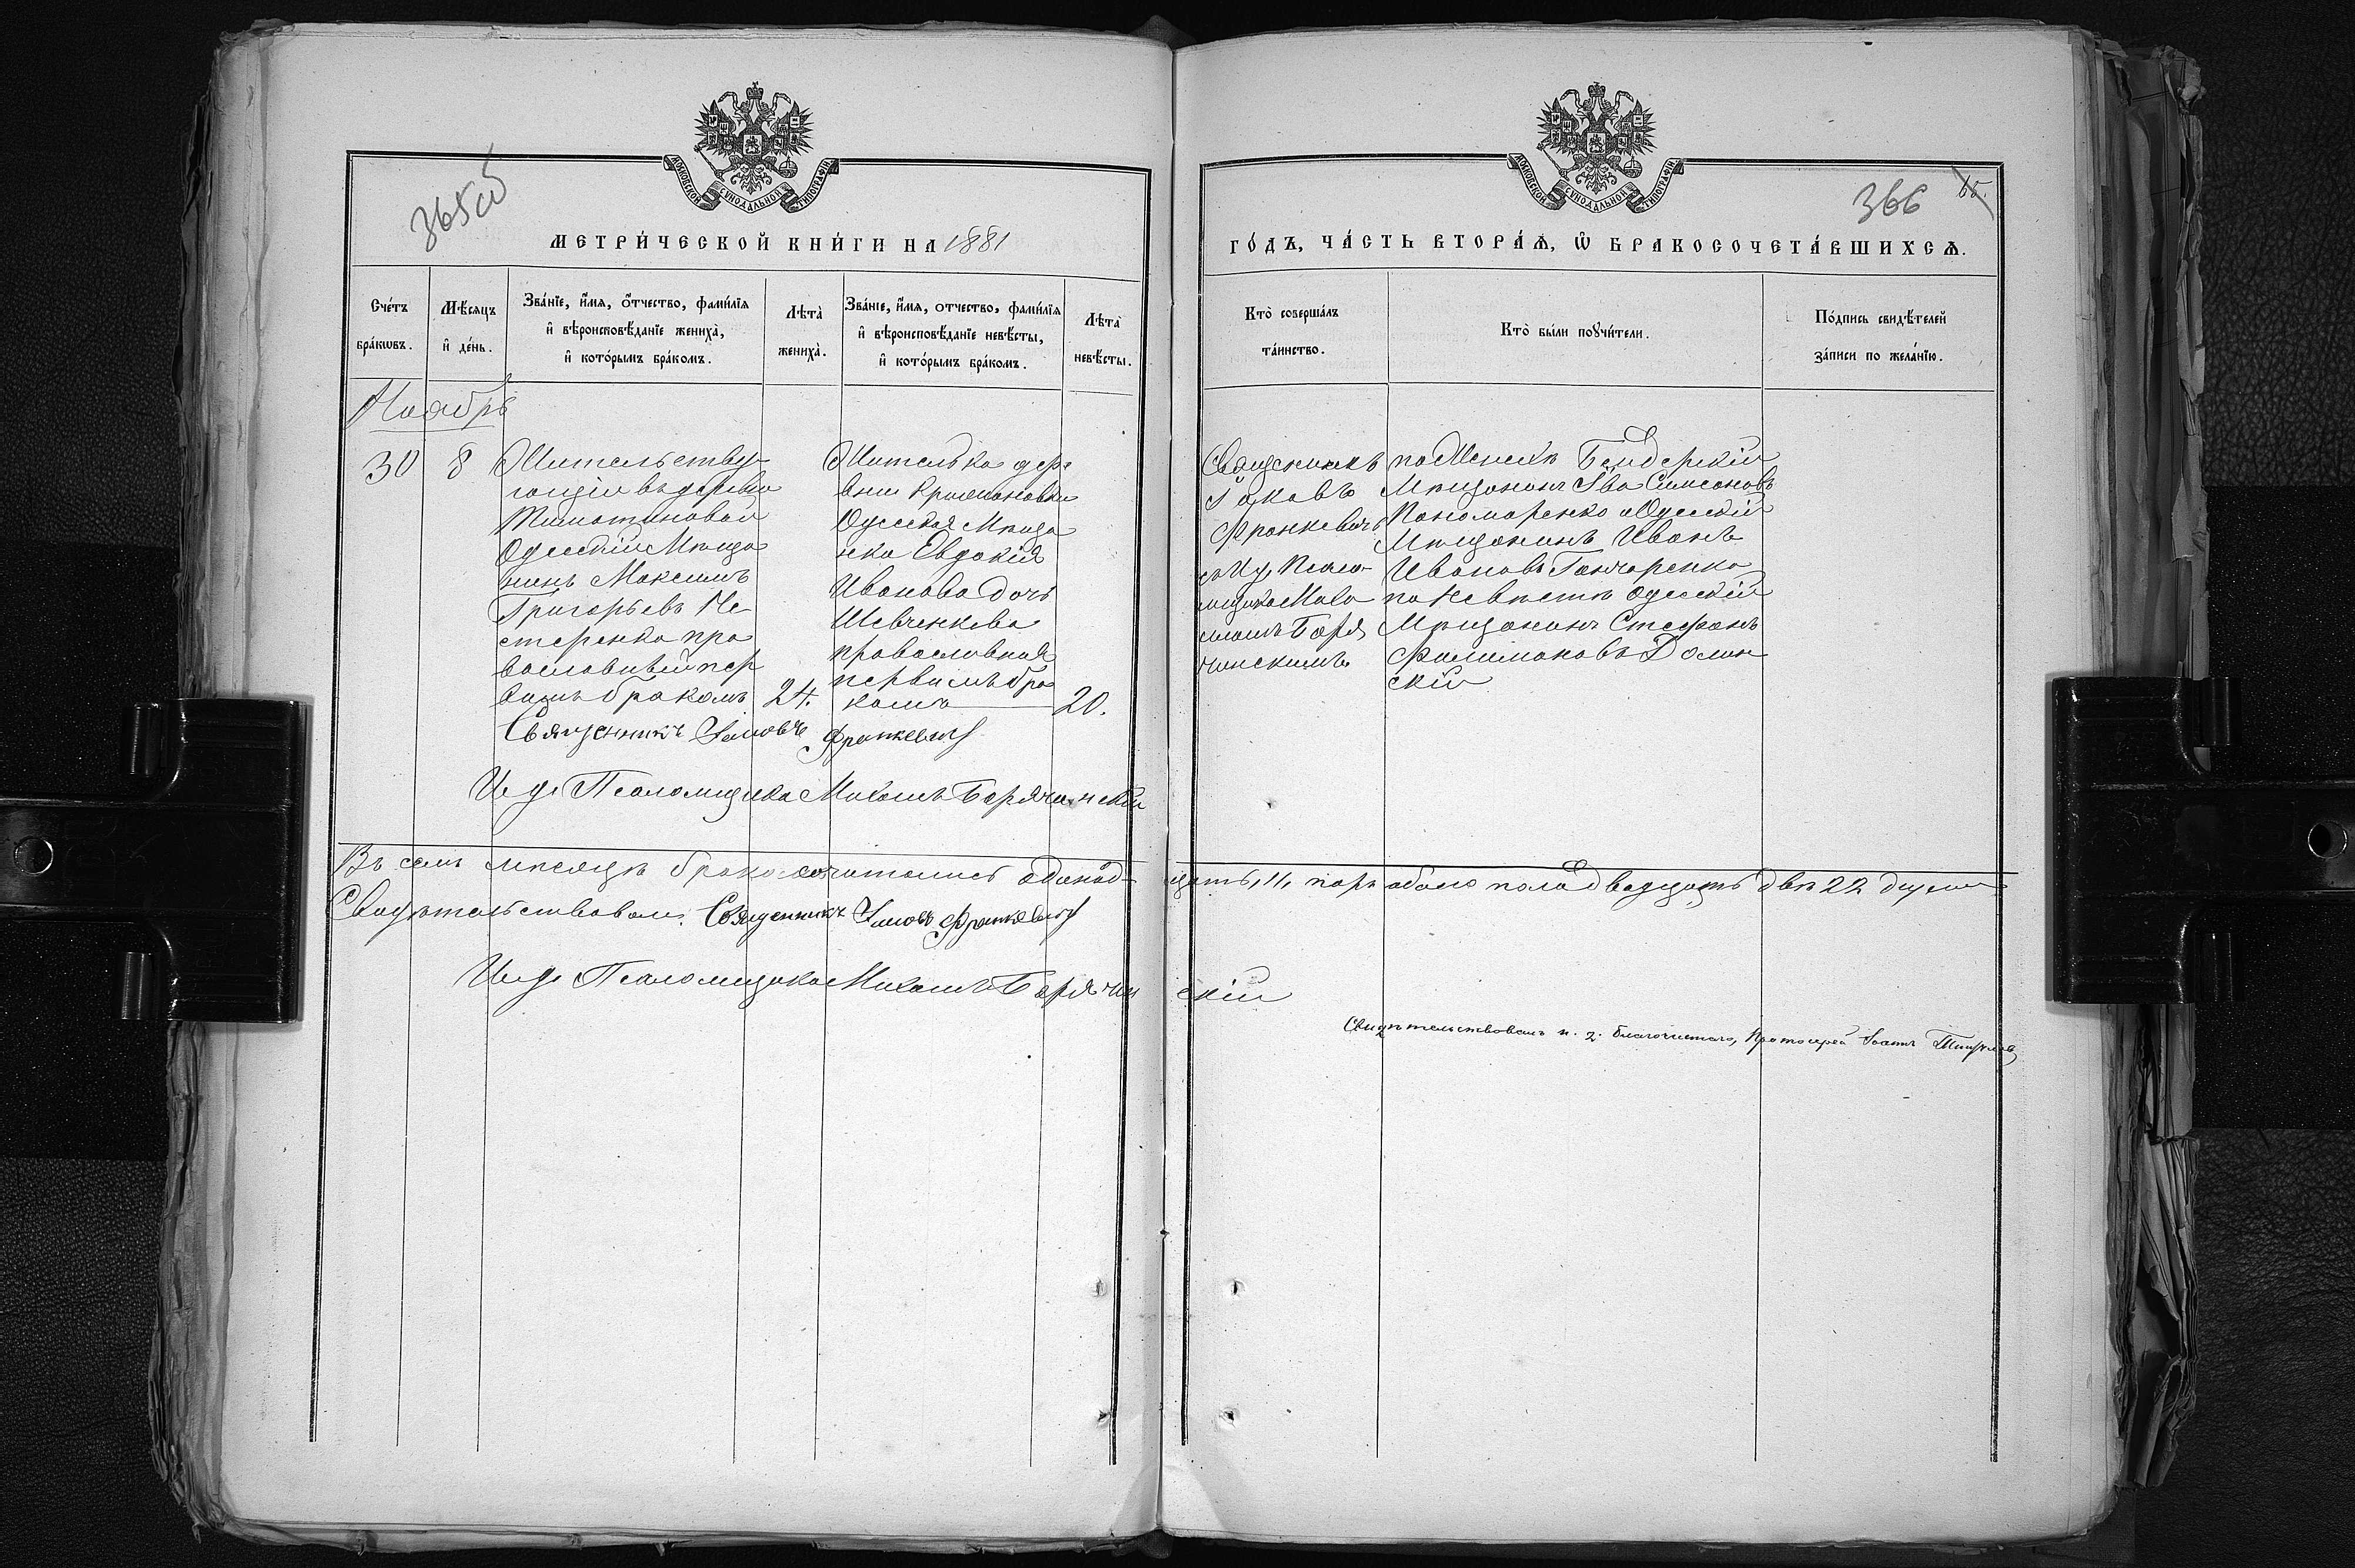 365об
МОСКОВСКОЙ СѴНОДАЛЬНОЙ ТИПОГРАФІИ
МЕТРИ́ЧЕСКОЙ КНИ́ГИ НА 1881
Сче́тъ бра́кѡвъ.
Мѣ́сяцъ и҆ де́нь.
Зва́нїе, и҆́мя, ѻ҆́тчество, фами́лїя
и҆ вѣроисповѣ́данїе жениха̀,
и҆ кото́рымъ бра́комъ.
Лѣта̀ жениха̀.
Зва́нїе, и҆́мя, ѻтчество, фами́лїя
и҆ вѣроисповѣ́данїе невѣ́сты,
и҆ кото́рымъ бра́комъ.
Лѣта̀ невѣ́сты.
Ноябрь
30
8
Жительству-
ющій въ деревн
Одесскій Мѣща
нинъ Максимъ
Григорьевъ Не
стеренко пра
вославный пер
вымъ бракомъ
24.
Жителька дере
вни
Одесская Мѣща
нка Евдокія
Иванова дочь
Шевченкова
православная
первымъ бра
комъ
20.
Священникъ Іаковъ Франкевичъ
И д Псаломщика Михаилъ Борячинскій
Въ семъ мѣсяцѣ бракосочетались одинад-
Свидѣтельствовали: Священникъ Іаковъ Франкевичъ
И д Псаломщика Михаилъ Борячин
366
65.
МОСКОВСКОЙ СѴНОДАЛЬНОЙ ТИПОГРАФІИ
ГО́ДЪ, ЧА́СТЬ ВТОРА́Ѧ, Ѿ БРАКОСОЧЕТА́ВШИХСѦ.
Кто̀ соверша́лъ
та́инство.
Кто̀ бы́ли поꙋчи́тели.
По́дпись свидѣ́телей
за́писи по жела́нїю.
Священникъ
Іаковъ
Франкевичъ
съ И д Псало-
мщика Миха
иломъ Боря
чинскимъ
по Женихѣ Бендерскій
Мѣщанинъ Симеоновъ
Пономаренко и Одесскій
Мѣщанинъ Иванъ
Ивановъ Гончаренко
по Невѣстѣ Одесскій
Мѣщанинъ Стефанъ
Филимоновъ Долин
скій
цать, 11, паръ обоего пола двадцать двѣ 22 души
скій
Свидѣтельствовалъ и. д. благочиннаго, Протоіерей Іоаннъ